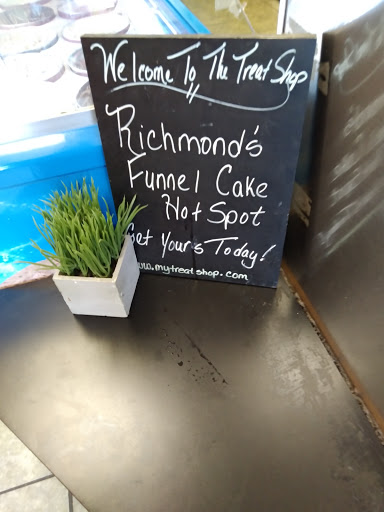 Welcome To The Treat Shop
Richmond's
Funnel Cake
Hot Spot
Get Your's Today!
www.mytreatshop.com